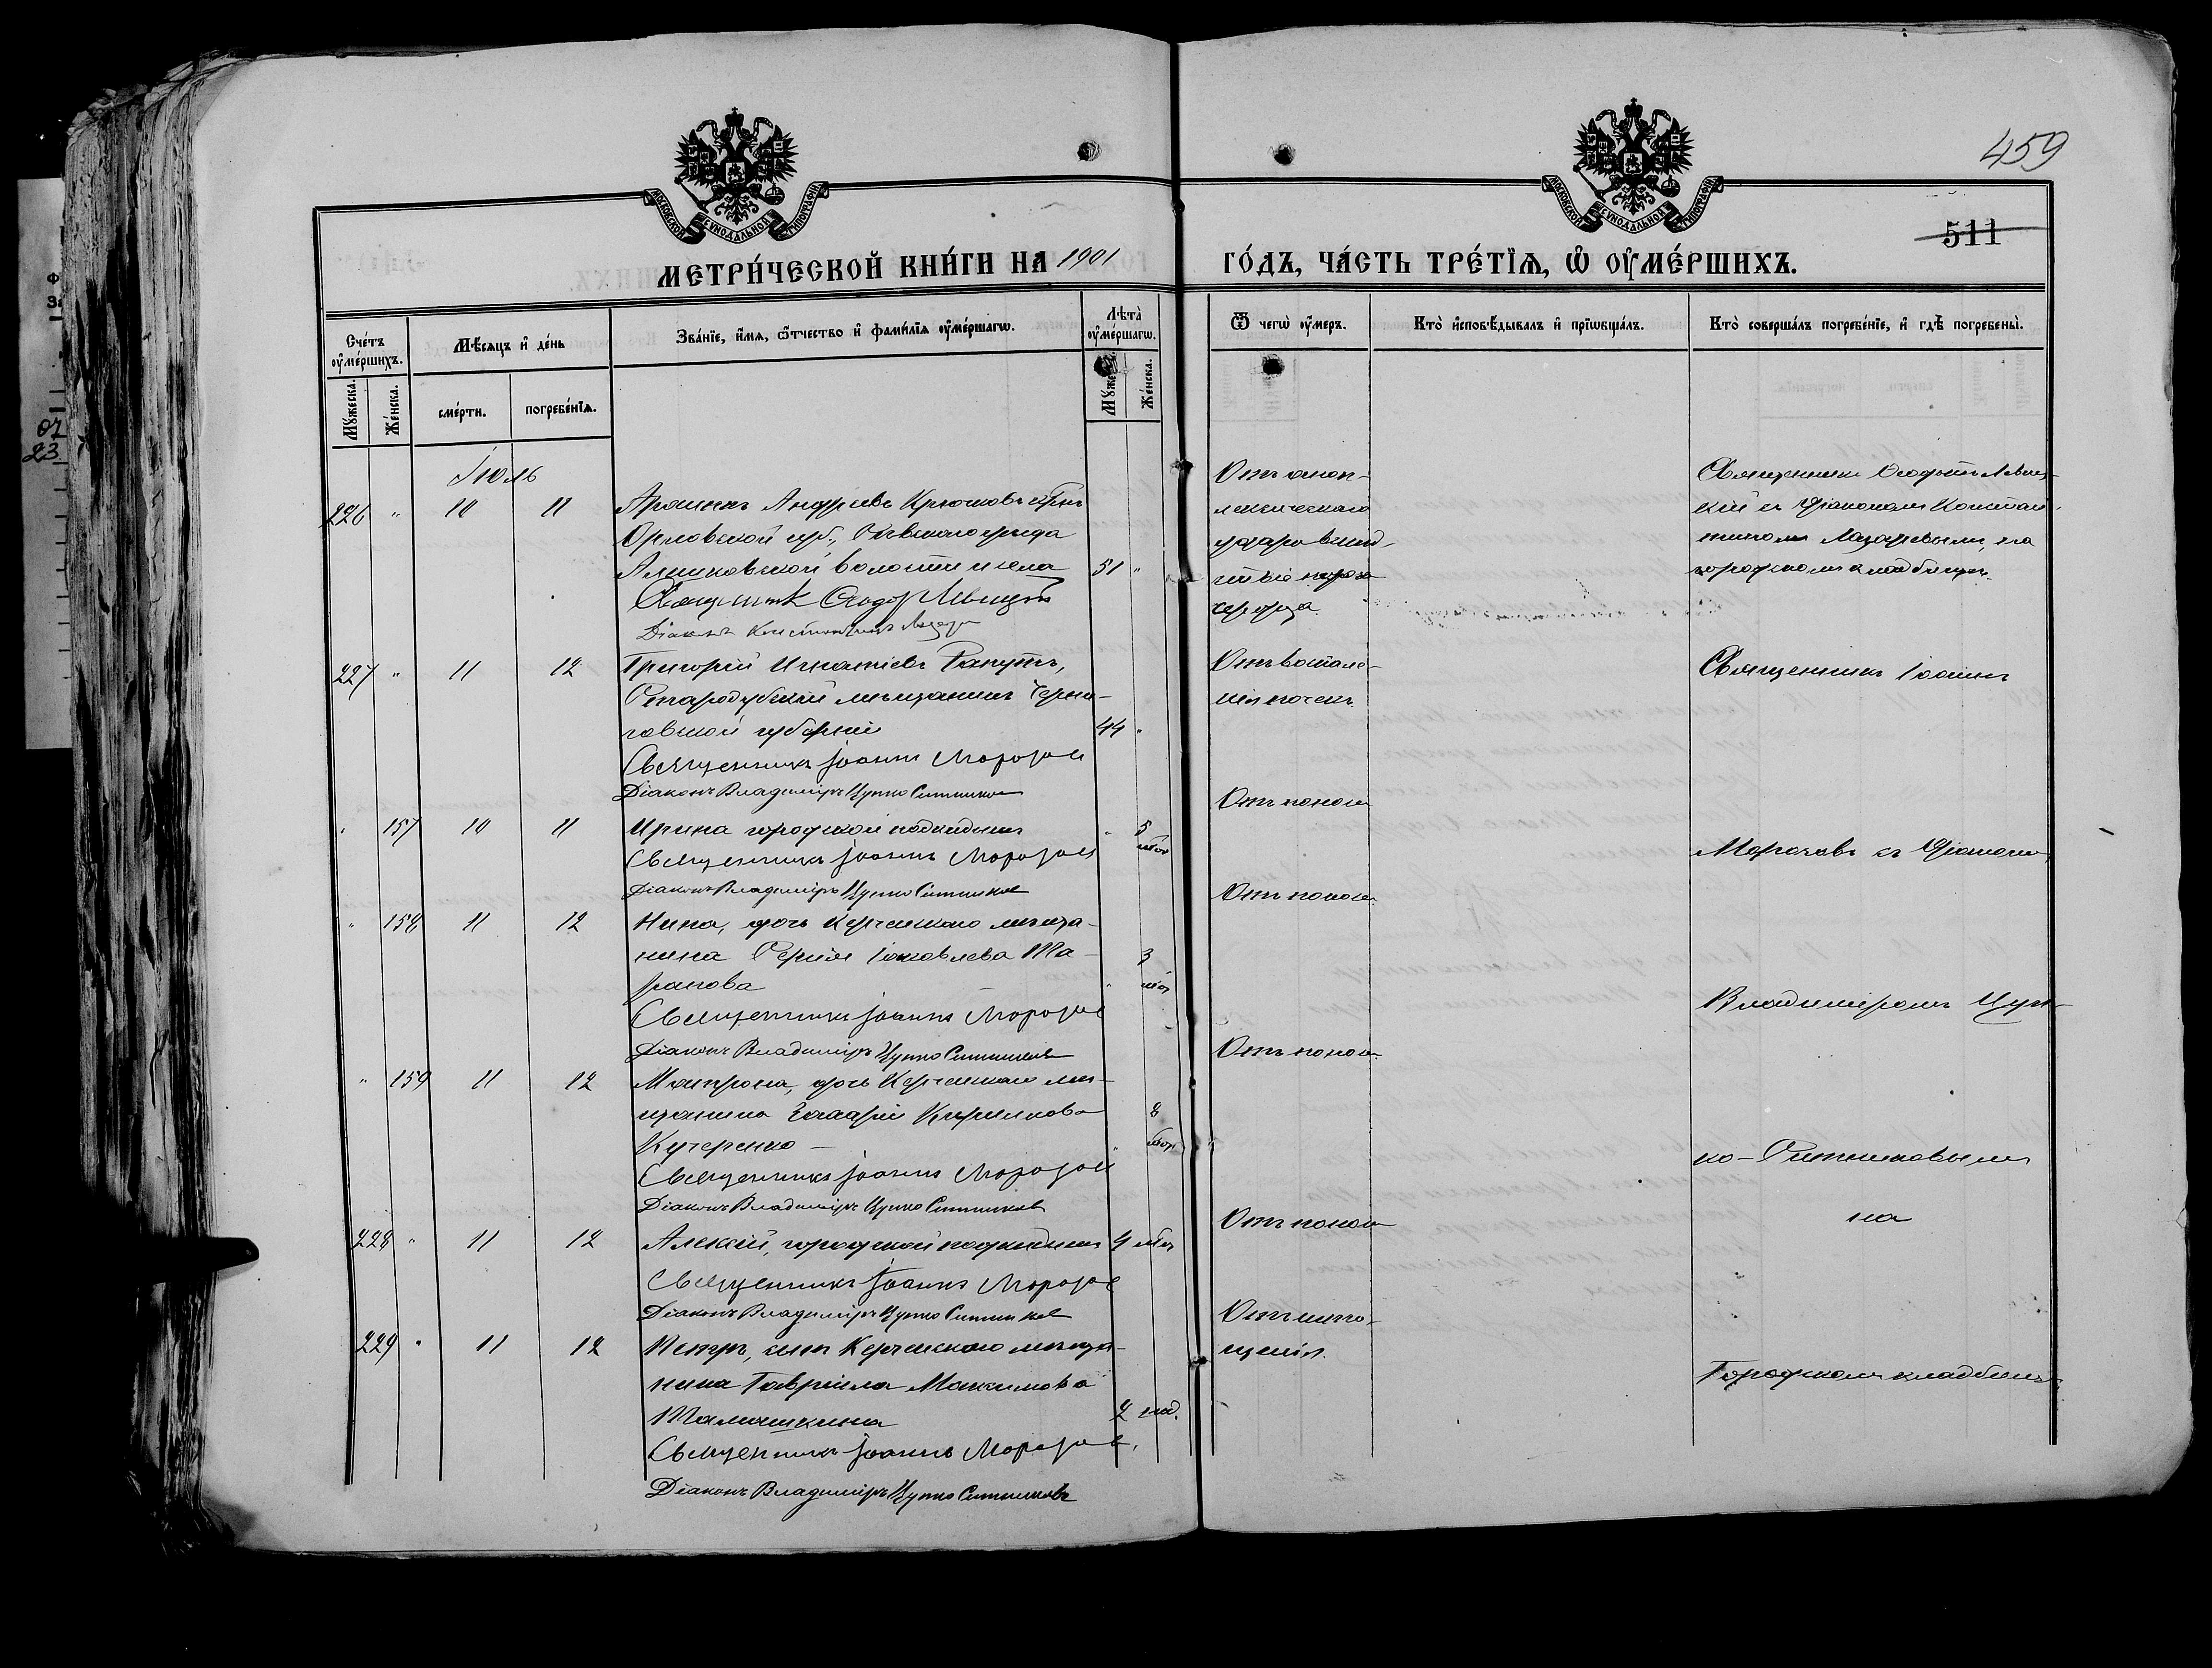 459
511
МОСКОВСКОЙ СУНОДАЛЬНОЙ ТИПОГРАФІИ
МОСКОВСКОЙ СУНОДАЛЬНОЙ ТИПОГРАФІИ
МЕТРИ́ЧЕСКОЙ КНИ́ГИ НА 1901 ГО́ДЪ, ЧА́СТЬ ТРЕ́ТІѦ, Ѡ ОУ҆МЕ́РШИХЪ.
Сче́тъ оу҆ме́ршихъ.
Мꙋжеска.
Же́нска.
Мѣ́сяцъ и҆ де́нь
сме́рти.
погребе́нїѧ.
Зва́нїе, и҆́мѧ, ѻ҆́тчество и҆ фами́лїѧ оу҆ме́ршагѡ.
Лѣ́та оу҆ме́ршагѡ.
Мꙋже
Же́нска.
Ѿ чегѡ̀ оу҆́меръ.
Кто̀ и҆сповѣ́дывалъ и҆ прїѡбща́лъ.
Кто̀ соверша́лъ погребе́нїе, и҆ гдѣ̀ погребены̀.
Іюль
226 " 10 11 Андреевъ Крючковъ
Орловской губ., Сѣвскаго уѣзда
волости села 51 "
Священникъ Ѳеодоръ Левицкій
Діаконъ Константинъ
Отъ апоп-
лексическаго
удара
сердца
Священникъ Левиц-
кій съ Діакономъ Констан-
тиномъ Лазаревымъ, на
городскомъ кладбищѣ.
227 " 11 12 Григорій Игнатіевъ
Стародубскій мѣщанинъ Черни-
говской губерніи 44 "
Священникъ Іоаннъ Морозовъ
Діаконъ Владиміръ Цупко Ситниковъ
Отъ воспале-
нія почекъ
Священникъ Іоаннъ
" 157 10 11 Ирина городской подкидышъ " 5 мѣс
Священникъ Іоаннъ Морозовъ
Діаконъ Владиміръ Цупко Ситниковъ
Отъ поноса
Морозовъ съ Діакономъ
" 158 11 12 Нина, дочь Керченскаго мѣща-
нина Сергія Іаковлева Та- 3
ранова " мѣс
Священникъ Іоаннъ Морозовъ
Діаконъ Владиміръ Цупко Ситниковъ
Отъ поноса.
Владиміромъ Цуп-
" 159 11 12 Матрона, дочь Керченскаго мѣ-
щанина Захарія Кириллова 8
Кучеренко – " мѣс
Священникъ Іоаннъ Морозовъ
Діаконъ Владиміръ Цупко Ситниковъ
Отъ поноса
ко-Ситниковымъ
228 " 11 12 Алексій, городской подкидышъ 4 мѣс
Священникъ Іоаннъ Морозовъ
Діаконъ Владиміръ Цупко Ситниковъ
Отъ поноса
на
229 " 11 12 Петръ, сынъ Керченскаго мѣща-
нина Гавріила Максимова
2 год.
Священникъ Іоаннъ Морозовъ,
Діаконъ Владиміръ Цупко Ситниковъ
Отъ исто-
щенія.
Городскомъ кладбищѣ